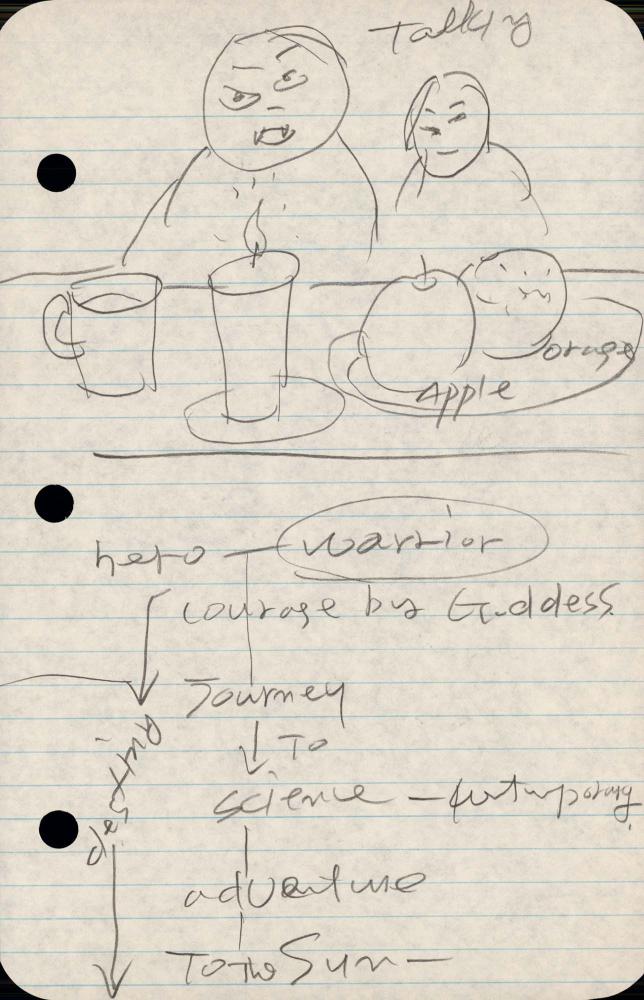 Talking
orange
Apple
hero — warrior
courage by Goddess
Journey
To
science —
adventure
To The Sun —